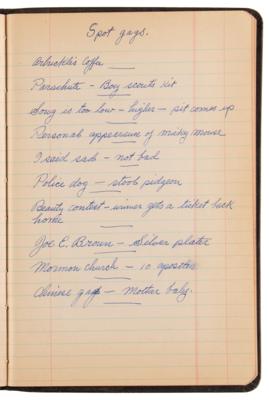 Spot gags.
Arbuckles Coffee
Parachute - Boy scouts kit
Song is too low - higher - pit comes up
Personal appearance of micky mouse
I said sad - not bad
Police dog - stool pidgeon
Beauty contest - winner gets a ticket back
home
Joe E. Brown - Silver plater
Mormon church - 10 apostles
Chinese gags - Mother baby.